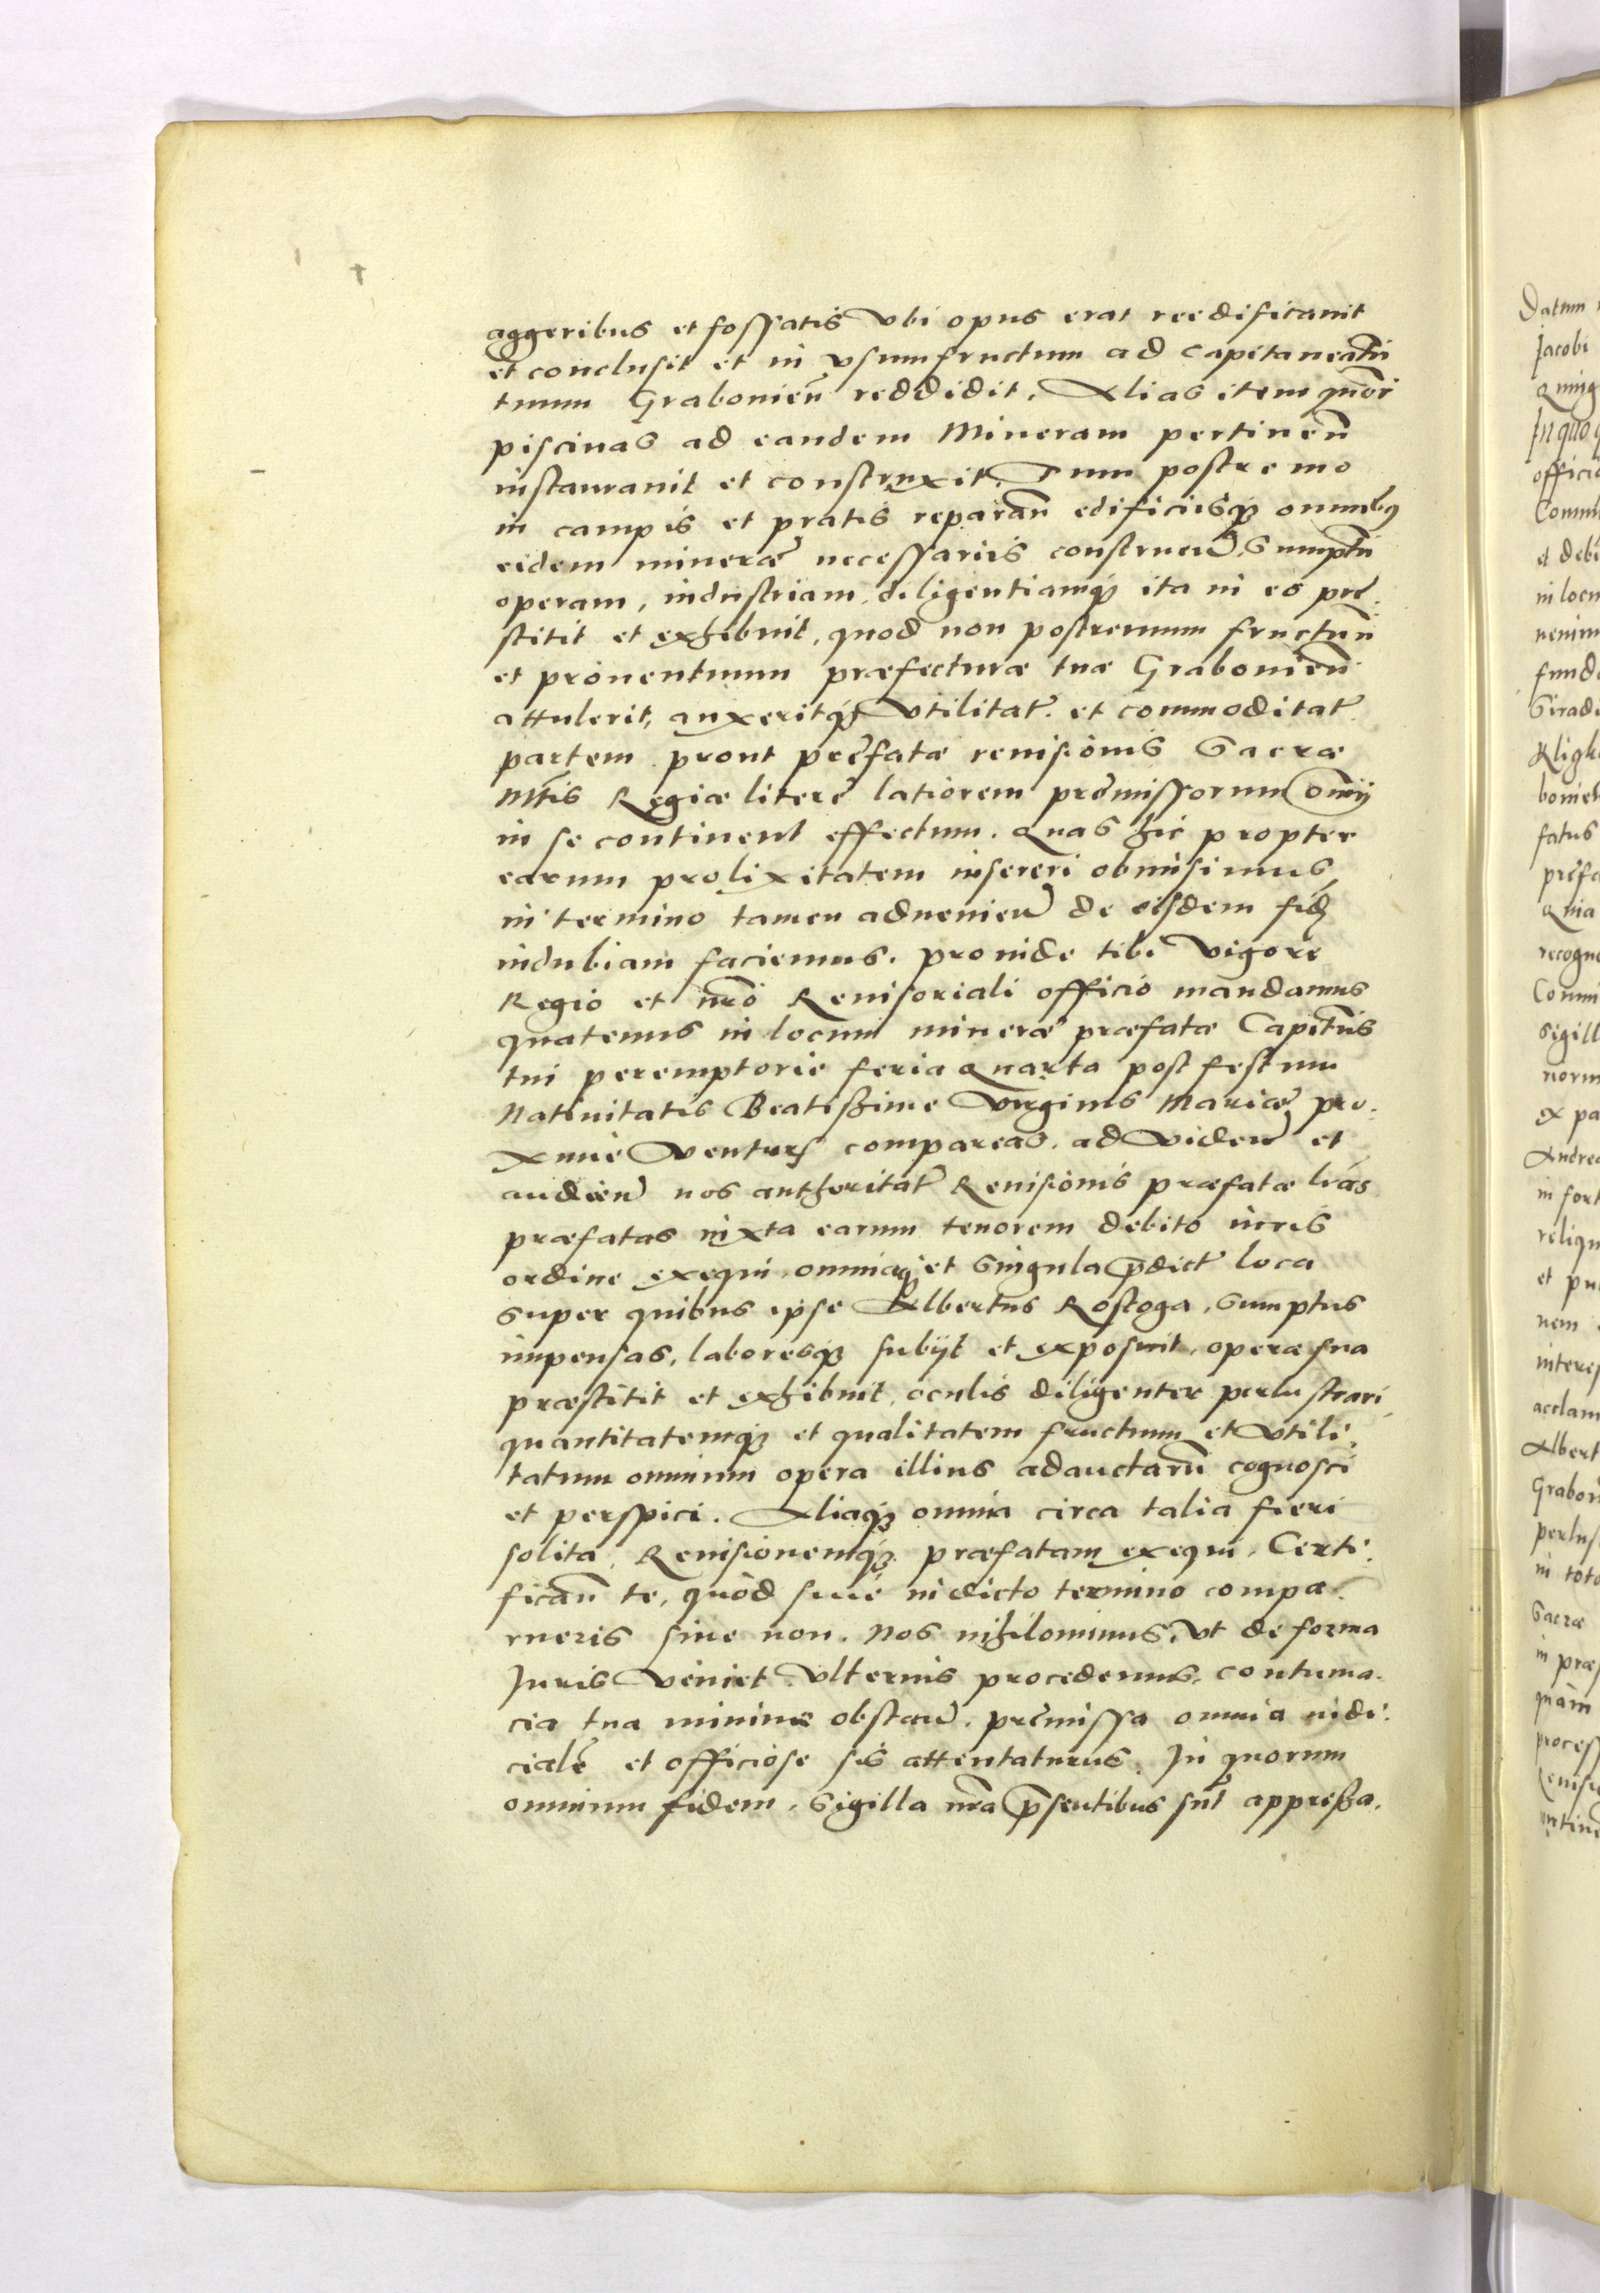 aggeribus et fossatis vbi opus erat reedificauit
et conclusit et in vsumfructum ad Capitaneatū
tuum Grabouień reddidit. Alias item quōr
piscinas ad eandem Mineram pertineñ
instaurauit et construxit. Tum postremo
in campis et pratis reparañ edificiisq; omnibus
eidem mineræ necessariis construeñ, Sumptū
operam, industriam, diligentiamq; ita in eo præ-
stitit et exhibuit, quod non postremum fructuū
et prouentuum præfecturæ tuæ Grabouień
attulerit, auxeritq; vtilitat. et commoditat.
partem prout præfatæ reuisionis Sacræ
Mtis Regiæ literæ latiorem præmissorum omī
in se continent effectum. Quas hic propter
earum prolixitatem inseri obmisimus,
in termino tamen aduenień de eisdem fidē
indubiam faciemus. Proinde tibi vigore
Regio et nrō Reuisoriali officio mandamus
quatenus in locum mineræ præfatæ Capitūs
tui peremptorie feria Quarta post festum
Natiuitatis Beatißime Virginis Mariæ pro-
xime ventur. compareas, ad videñ et
audień nos authoritat Reuisionis præfatæ lrās
præfatas iuxta earum tenorem debito iuris
ordine exequi omniaq; et singula p̄dict loca
super quibus ipse Albertus Rostoga, sumptus
impensas, laboresq; subijt et exposuit, operæ sua
præstitit et exhibuit, oculis diligenter perlustrari,
quantitatemq; et qualitatem fructuum et vtili-
tatum omnium opera illius adauctarū cognosci
et perspici. Aliaq; omnia circa talia fieri
solita, Reuisionemq; præfatam exequi. Certi-
ficañ te, quòd siue in dicto termino compa-
rueris siue non. Nos nihilominus, vt de forma
Juris veniet vlterius procedemus, contuma-
cia tua minime obstañ. præmissa omnia iudi-
cialē et officiose sis attentaturus. In quorum
omnium fidem, Sigilla nrā p̄sentibus sūt appreßa.